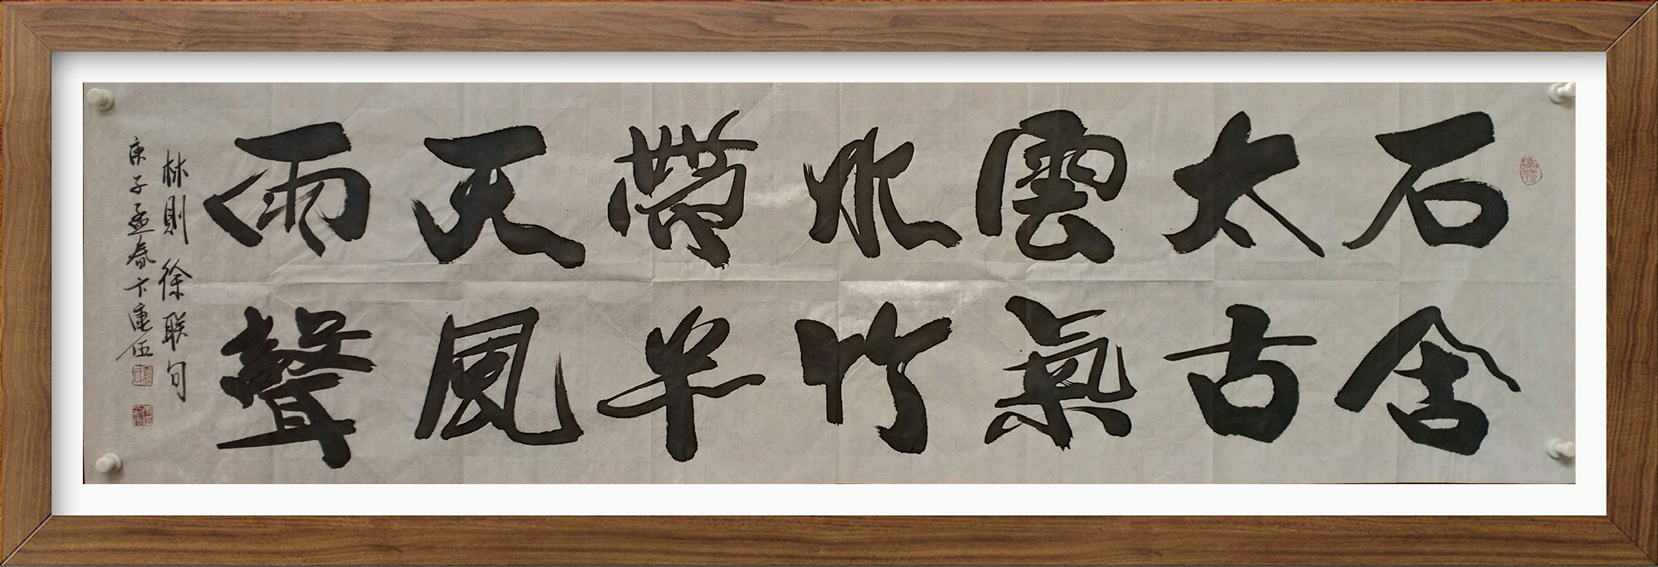 石含
太古
雲氣
水竹
帶半
天風
雨聲
林則徐联句
庚子孟春